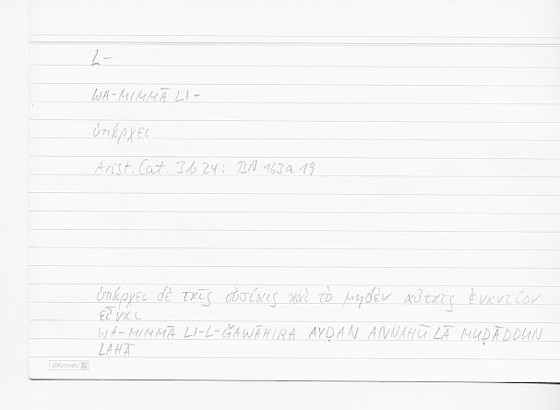 L-
WA-MIMMĀ LI-
ὑπάρχει
Arist. Cat. 3b24: BN 163a19
ὑπάρχει δὲ ταῖς οὐσίαις καὶ τὸ μηδὲν αὐταῖς ἐναντίον
εἶναι
WA-MIMMĀ LI-L-ǦAWĀHIRA AYḌAN ANNAHŪ LĀ MUḌĀDDUN
LAHĀ